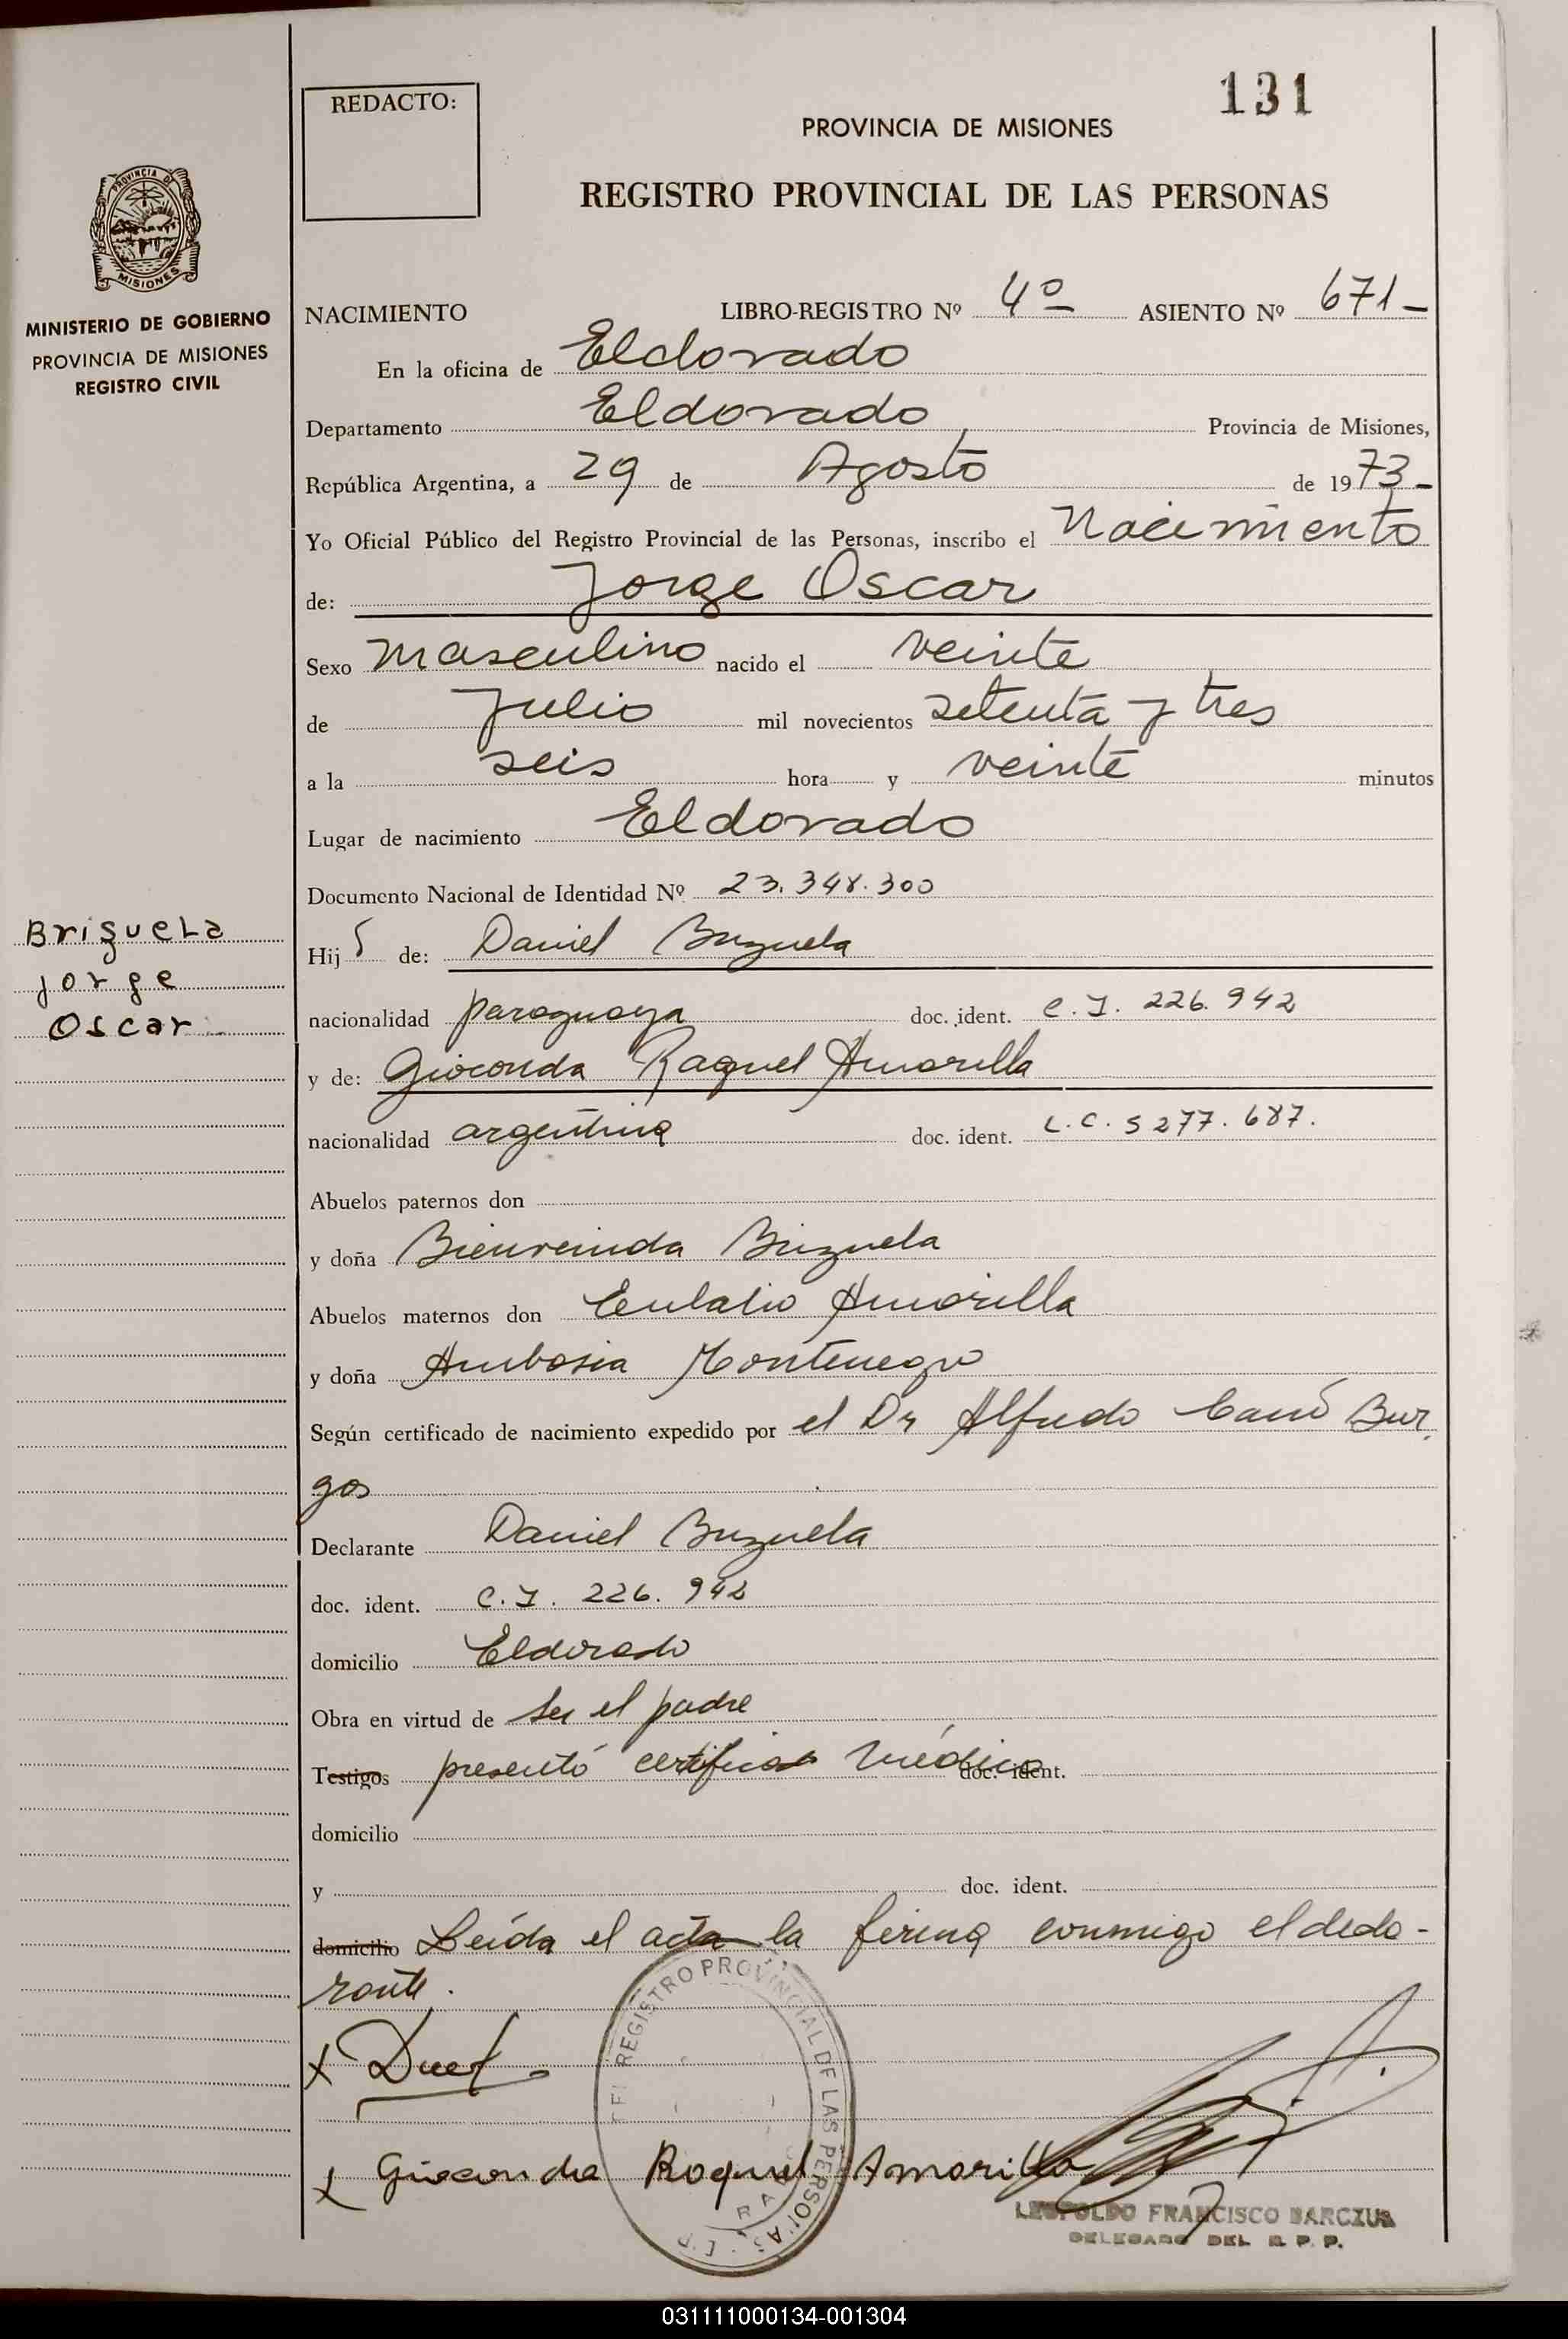 131
REDACTO:
PROVINCIA DE MISIONES
REGISTRO PROVINCIAL DE LAS PERSONAS
PROVINCIA DE
MISIONES
MINISTERIO DE GOBIERNO
PROVINCIA DE MISIONES
REGISTRO CIVIL
NACIMIENTO LIBRO-REGISTRO Nº 4º ASIENTO Nº 671-
En la oficina de Eldorado
Departamento Eldorado, Provincia de Misiones,
República Argentina, a 29 de Agosto de 1973-
Yo Oficial Público del Registro Provincial de las Personas, inscribo el Nacimiento
de: Jorge Oscar
Sexo masculino nacido el veinte
de Julio mil novecientos setenta y tres
a la seis hora y veinte minutos
Lugar de nacimiento Eldorado
Documento Nacional de Identidad Nº 23.348.300
Brizuela
Jorge
Oscar
Hijo de: Daniel Brizuela
nacionalidad paraguaya doc. ident. C.I. 226.942
y de: Gioconda Raquel Amarilla
nacionalidad argentina doc. ident. L.C. 5277.687.
Abuelos paternos don
y doña Bienvenida Brizuela
Abuelos maternos don Eulalio Amarilla
y doña Ambosia Montenegro
Según certificado de nacimiento expedido por el Dr Alfredo Bur
gos
Declarante Daniel Brizuela
doc. ident. C.I. 226.942
domicilio Eldorado
Obra en virtud de ser el padre
Testigos presentó certificado médico doc. ident.
domicilio
y doc. ident.
domicilio Leída el acta la firma conmigo el decla-
rante.
REGISTRO PROVINCIAL DE LAS PERSONAS
x
x Gioconda Raquel Amarilla
LEOPOLDO FRANCISCO BARCZUK
DELEGADO DEL R. P. P.
031111000134-001304